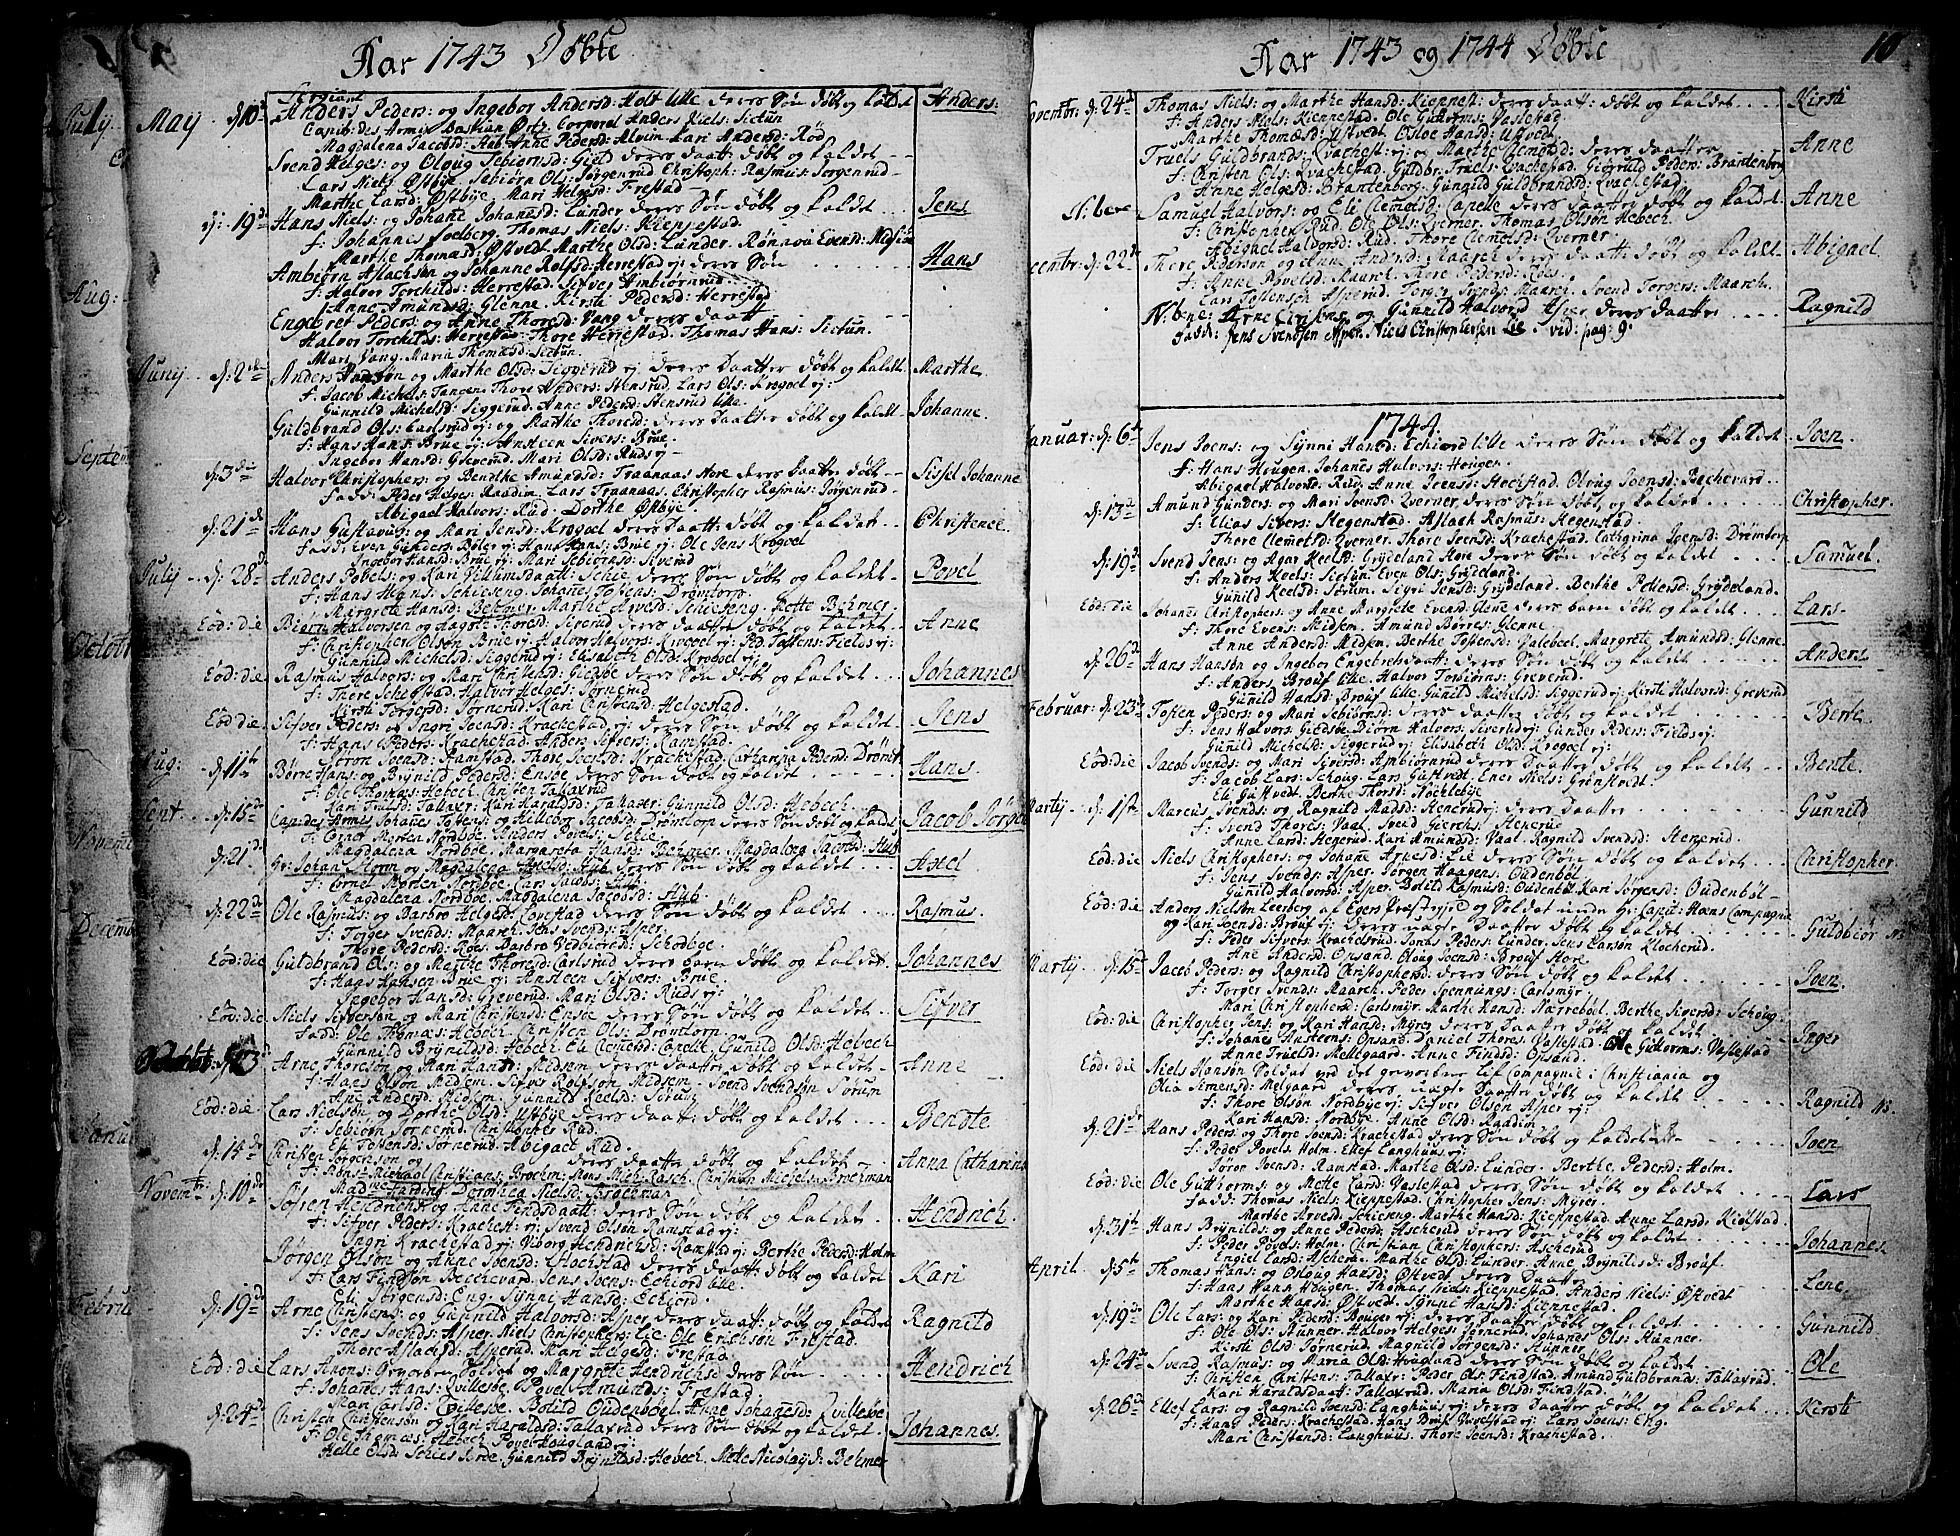 Aar 1743 Døbte
May d. 10de
Anders Peders: og Ingebor Andersd: Holt lille deres Søn døbt og kaldet Anders:
Magdalena Jacobsd: Hub. Anne Pedersd: Alvim Kari Andersd: Rød
Svend Helges: og Oloug Sebiørnsd: Gield deres daatt: døbt og kaldet
Lars Niels: Østbije. Sebiørn Ols: Jørgenrud Christoph: Rasmus: Jørgenrud
Marthe Larsd: Østbije. Mari Helgesd: Frestad
19de Hans Niels: og Johane Johanesd: Lunder deres Søn døbt og kaldet Jens
f: Johannes Soelberg. Thomas Niels: Kieppestad
Marthe Thomasd: Østvedt. Marthe Olsd: Lunder. Rønnava Evensd: Midsem
Ambiørn Aslachsøn og Johanne Rolfsd: Herrestad ej: deres Søn Hans
f: Halvor Torchilds: Herrestad. Sifver Ambiørnrud
Anne Amundsd: Glenne. Kirsti Pedersd: Herrestad
Engebret Peders: og Anne Thoresd: Vang deres daatt
Halvor Torchilds: Herrestad. Thore Herrestad. Thomas Hans: Sictun.
Mari Vang. Maria Thomasd: Sictun.
Junij d: 2den Anders Hansøn og Marthe Olsd: Siggerud ej: deres Daatter døbt og kaldet Marthe
f: Jacob Michels: Tangen. Thore Anders: Stensrud. Lars Ols: Krogoel ej:
Gunnild Michelsd: Siggerud. Anne Pedersd: Stensrud lille
Guldbrand Ols: Carlsrud ej: og Marthe Thoresd: deres Daatter døbt og kaldet Johanne.
f: Hans Hans: Brue ej: Ansteen Sivers: Brue.
Ingebor Hansd: Greverud. Mari Olsd: Ruds ej:
d: 3die Halvor Christophers: og Bendthe Amundsd: Traanaas Nore deres Daatter døbt Sissel Johanne
fadd: Peder Helges: Raadim. Lars Traanaas. Christopher Rasmus: Jørgenrud
Abigael Halvors: Rud. Dorthe Østbije
d: 21de Hans Gustavus: og Mari Jensd: Krogoel deres Daatt: døbt og kaldet Christence.
fadd: Even Gunders: Røler ej: Hans Hans: Brue ej: Ole Jens Krogoel
Ingebor Hansd: Brue ej: Mari Sebiørnsd: Siverud
Julij d: 28de Anders Pobels: og Kari Guttumsdaatt: Schie deres Søn døbt og kaldet Povel
f: Hans Hans: Schieseng. Johanes Tostens: Drømtorp.
Margrete Hansd: Behmer. Marthe Arvesd: Schieseng. Mette Behmer.
Eod: die Biørn Halvorsen og Aagote Thoresd: Siverud deres daatter døbt og kaldet Anne
f: Christopher Olsøn Brue ej. Halvor Halvors: Krogoel ej: Ped. Tostens: Fields ej:
Gunnild Michelsd: Siggerud ej: Elisabeth Olsd: Krogoel ej:
Eod: die Rasmus Halvors: og Mari Christensd: Giedsøe deres Søn døbt og kaldet Johannes
f: Thore Schiøstad. Halvor Helges: Tørnerud
Kirsti Torgersd: Tørnerud. Kari Christensd: Helgestad.
Eod: die Sifver Peders: og Ingri Joensd: Krachestad ej: deres Søn døbt og kaldet Jens
f: Hans Peders: Krachestad. Anders Sifvers: Ramstad.
Jøron Joensd: Ramstad. Thore Joensd: Krachestad. Catharina Pedersd: Drømt.
Aug: d: 11te Børre Hans: og Brynild Pedersd: Ensøe deres Søn døbt og kaldet Hans.
f: Ole Thomas: Hebech. Christen Tallaxrud
Kari Truelsd: Tallaxr: Kari Haraldsd: Tallaxr: Gunnild Olsd: Hebech.
Sept d: 15de Capit: des Armes Johanes Tostens: og Hillebor Jacobsd: Drømtorp deres Søn døbt og kaldt Jacob Jørgen
Cornet Morten Nordbøe. Anders Povels: Schie.
Magdalena Nordbøe. Margareta Hansd: Behmer. Magdalena Jacobsd: Hub
d: 21de Hr: Johan Storm og Magdalena Axelsd: Hub deres Søn døbt og kaldet Axel
f: Cornet Morten Nordbøe. Lars Jacobs: Hub
Magdalena Nordbøe. Magdalena Jacobsd: Hub.
d: 22de Ole Rasmus: og Barbro Helgesd: Lovestad deres Søn døbt og kaldet Rasmus.
f: Torger Svends: Maarch. Jens Svends: Asper.
Thore Pedersd: Roes. Barbro Vedbiørnsd: Schodbøe.
Eod: die Guldbrand Ols: og Marthe Thoresd: Carlsrud deres barn døbt og kaldet Johannes
f: Hans Hansen Brue ej: Ansteen Sifvers: Brue.
Ingebor Hansd: Greverud. Mari Olsd: Ruds ej:
Eod: die Niels Sifversøn og Mari Christensd: Ensøe deres Søn døbt og kaldet Sifver
fadd: Ole Thomas: Hebech. Christen Ols: Drømtorp.
Gunnild Brynildsd: Hebech. Eli Clemetsd: Capelle. Gunild Olsd: Hebech
Arne Thoresøn og Mari Hansd: Midsem deres Daatt: døbt og kaldet Anne
f: Hans Olsøn Midsem. Sifver Rolfsøn Midsem. Svend Svendsøn Sørum
Ane Andersd: Midsem. Gunnild Keelsd: Sørum
Eod: die: Lars Nielsøn og Dorthe Olsd: Østbye deres daatt: døbt og kaldet Bendte
f: Sebiørn Tørnerud. Christopher Rud.
Eli Tostensd: Tørnerud. Abigael Rud.
d: 14de Christen Jørgensøn og deres daatter døbt og kaldet Anna Catharina
f: Mons: Michael Christians: Broehm. Mons Mich: Rasch. Christian Michels: Broehman
Mad:me Harding. Dorothea Nielsd: Broehman
Novemr: d: 10de Søfren Hendrichs: og Anne Findsdaatt: deres Søn døbt og kaldet Hendrich.
f: Sifver Peders: Krachest: ej: Svend Olsøn Ramstad ej:
Ingri Krachestad ej: Viborg Hendrichsd: Ramstad ej: Berthe Pedersd: Holm
Jørgen Olsøn og Anne Svensd: Hochstad deres daatt: døbt og kaldet Kari
f: Lars Findsøn Bechevard. Jens Joens: Echiord lille.
Eli Jørgensd: Eng. Synni Hansd: Echiord.
d: 19de Arne Christens: og Gunnild Halvorsd: Asper deres daatt: døbt og kaldet Ragnild
f: Jens Svends: Asper. Niels Christophers: Lie. Ole Erichsøn Frestad.
Thore Aslachsd: Asperud. Mari Helgesd: Frestad.
Eod: die Lars Anons: Gevorben Soldat og Margrete Hendrichsd deres Søn Hendrich
f: Johanes Hans: Qvillesbe. Povel Amunds: Frestad.
Mari Carlsd: Qvillesbe. Bolild Oudenbøel. Anne Johanesd: Qvillesbe
d: 24de Christen Christensøn og Kari Haraldsd: Tallaxrud deres Søn døbt og kaldet Johannes.
f: Ole Thomas: Hebech. Povel Hougland ej:
Helle Olsd: Schies Jorde. Gunnild Brynildsd: Hebech. Mette Nicolaysd: Behmer
July.
Aug:
Septem
Octobr
Novemb
Decemb
Janu
Febru
Aar 1743 og 1744 Døbte 10
Novembr: d: 24de Thomas Niels: og Marthe Hansd: Kieppest: deres daatt: døbt og kaldet Kirsti
f: Anders Niels: Kieppestad. Ole Guttorms: Vastestad.
Marthe Thomasd: Østvedt. Osloe Hansd: Østvedt
Truels Guldbrands: Qvachest: ej: og Marthe Clemetsd: deres daatter Anne
f: Christen Ols: Qvachestad. Guldbr: Truels: Qvachestad. Giørruld Peders: Brandenborg
Anne Helgesd: Brantenborg. Gunnild Guldbrandsd: Qvachestad
N: bene Samuel Halvors: og Eli Clemetsd: Capelle deres daatter døbt og kaldet Anne
f: Christopher Rud. Ole Ols: Qverner. Thomas Olsøn Hebech.
Abigael Halvorsd: Rud. Thore Clemetsd: Qverner.
Decembr: d: 22de Thore Pedersøn og Anne Andersd: Maarch deres daatt: døbt og kaldet Abigael
f: Anne Povelsd: Maarch. Thore Pedersd: Roes.
Lars Tostensøn Asperud. Torger Svends: Maarch. Svend Torgers: Maarch.
N: bene: Arne Christens og Gunnild Halvorsd Asper deres daatter Ragnild
fadd: Jens Svendsen Asper. Niels Christophersen Lie vid: pag: 9.
1744.
Januar: d: 6te Jens Joens: og Synni Hansd: Echiord lille deres Søn døbt og kaldet Joen.
f: Hans Hougen. Johanes Halvors: Hougen.
Abigael Halvorsd: Rud. Anne Jensd: Hochstad. Oloug Joensd: Bechevard.
d: 13de Amund Gunders: og Mari Joensd: Qverner. deres Søn døbt og kaldet Christopher.
f: Elias Sivers: Hegenstad. Aslach Rasmus: Hegenstad.
Thore Clemetsd: Qverner. Thore Joensd: Krachestad. Cathrina Joensd: Drømtorp
d: 19de Svend Jens: og Agar Keelsd: Grydeland Hore deres Søn døbt og kaldet Samuel.
f: Anders Keels: Sictun. Even Ols: Grydeland.
Gunild Keelsd: Sørum. Sigri Jensd: Grydeland. Berthe Pedersd: Grydeland.
Eod: die Johanes Christophers: og Anne Margrete Evensd: Glene deres barn døbt og kaldet Lars.
f: Thore Evens: Midsem. Amund Børres: Glenne.
Anne Andersd: Midsem. Berthe Tostensd: Dalebøel. Margrete Amundsd: Glenne.
d: 26de Hans Hansøn og Ingebor Engebretsdaatt: deres Søn døbt og kaldet Anders
f: Anders Brouf lille. Halvor Torbiørns: Greverud.
Gunild Hansd: Brouf lille. Gunild Michelsd: Siggerud ej: Kirsti Halvorsd: Greverud
Februar: d: 23de Tosten Peders: og Mari Sebiørnsd: deres daatter døbt og kaldet Berte
f: Jens Halvors: Giedsøe. Biørn Halvors: Siverud ej: Gunder Peders: Fields ej:
Gunild Michelsd: Siggerud ej: Elisabeth Olsd: Krogoel ej:
Eod: die Jacob Svends: og Mari Siversd: Ambiørnrud deres Daatter døbt og kaldet Bente.
f: Jacob Lars: Schoug. Lars Gustvedt. Ener Niels: Grønstvedt.
Eli Gustvedt. Berthe Thorsd: Nøchlebije
Martij d: 1ste Marcus Svends: og Ragnild Madsd: Henerud ej: deres Daatter Gunnild
f: Svend Thores: Vaal. Svend Gierchs: Henerud
Anne Larsd: Hegerud. Kari Amundsd: Vaal. Ragnild Svendsd: Henerud
Eod: die Niels Christophers: og Johane Arnesd: Lie deres Søn døbt og kaldet Christopher
f: Jens Svends: Asper. Jørgen Haagens: Oudenbøl
Gunild Halvorsd: Asper. Bolild Rasmusd: Oudenbøl. Kari Jørgensd: Oudenbøl
Eod: die Anders Nielsøn Leerberg af Egers Præstegjæ og Soldat under Hr: Capit: Hoens Compagnie
og Kari Joensd: Brouf ej: deres uægte Daatter døbt og kaldet Guldbiør
f: Peder Sifvers: Krachesrud. Jonas Peders: Lunder. Jens Larsøn Klocherud.
Ane Andersd: Opsand. Oloug Joensd: Brouf Store
Martij d: 15de Jacob Peders: og Ragnild Christophersd: deres Søn døbt og kaldet Joen.
f: Torger Svends: Maarch. Peder Spennings: Carlsmyr.
Mari Christophersd: Carlsmyr. Marthe Hansd: Nærrebøel. Berthe Siversd: Schoug
Eod: die Christopher Jens: og Kari Hansd: Myrer deres Daatter døbt og kaldet Inger
f: Johanes Husteens: Opsand. Daniel Thores: Vastestad. Ole Guttorms: Vastestad
Anne Truelsd: Mellegaard. Anne Findsd: Opsand.
Eod: die Niels Hansøn Soldat ved det gevorbne Lif Compagnie i Christiania og
Olia Simensd: Melgaard deres uægte Daatter døbt og kaldet Ragnild Ns.
f: Thore Olsøn Nordbye ej: Sifver Olsen Asper ej:
Kari Hansd: Nordbye. Anne Olsd: Raadim
d: 21de Hans Peders: og Thore Joensd: Krachestad deres Søn døbt og kaldet Joen
f: Peder Povels: Holm. Ellef Langhuus ej:
Jøron Joensd: Ramstad. Marthe Olsd: Lunder. Berthe Pedersd: Holm.
Eod: die Ole Gutthorms: og Mette Larsd: Vastestad deres Søn døbt og kaldet Lars
fadd: Thomas Niels: Kieppestad. Christopher Jens: Myrer
Marthe Arvesd: Schieseng. Marthe Hansd: Kieppestad. Anne Larsd: Kiølstad.
d: 31te Hans Brynilds: og Anne Pedersd: Ascherud deres Søn døbt og kaldet Johannes.
f: Peder Povels: Holm. Christian Christophers: Ascherud
Engiel Larsd: Ascherud. Marthe Olsd: Lunder. Anne Brynildsd: Brouf.
April. d: 5te Thomas Hans: og Osloug Hansd: Østvedt deres Daatter Lene.
f: Hans Hans Hougen. Thomas Niels: Kieppestad. Anders Niels: Østvedt
Marthe Hansd: Østvedt. Synne Hansd: Kieppestad.
d: 19de Ole Lars: og Kari Pedersd: Bouger ej: deres Daatter døbt og kaldet Gunnild
f: Ole Ols: Hunner. Halvor Helges: Tørnerud. Johanes Ols: Hunner.
Kirsti Olsd: Tørnerud. Magnild Jørgensd: Hunner.
d: 24de Svend Rasmus: og Maria Olsd: Hougland deres Søn døbt og kaldet Ole
f: Christen Christens: Tallaxr: Peder Ols: Findstad. Amund Guldbrands: Tallaxrud.
Kari Haraldsdaatt: Tallaxrud. Maria Olsd: Findstad.
d: 26de Ellef Lars: og Ragnild Joensd: Langhuus ej: deres Daatter døbt og kaldet Kirsti
f: Hans Peders: Krachestad. Hans Brouf. Lars Joens: Eng.
Mari Christensd: Langhuus. Thore Joensd: Krachestad.